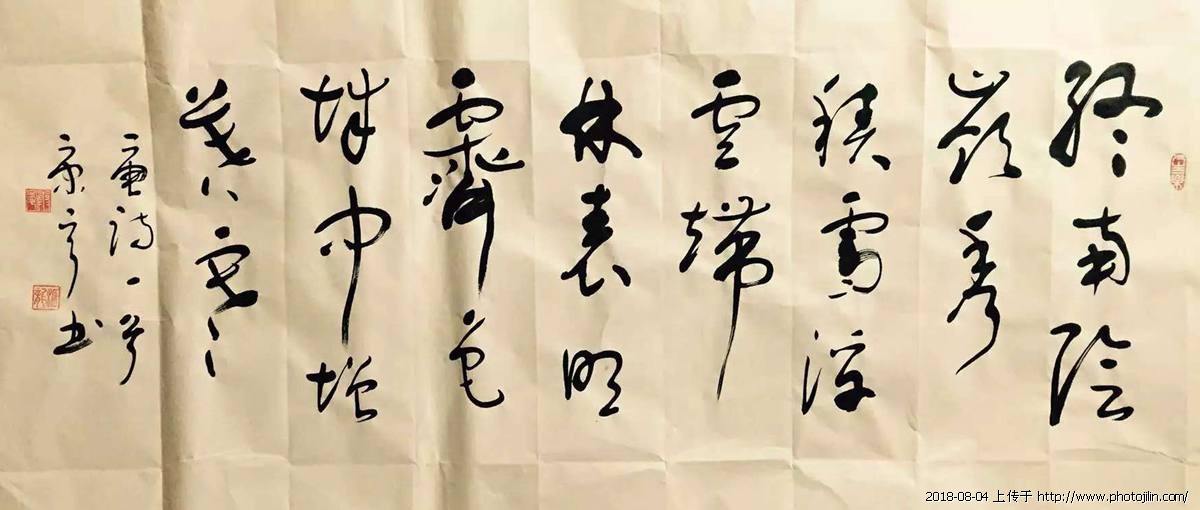 終南陰
嶺秀
積雪浮
雲端
林表明
霽色
城中增
暮寒
唐詩一首
京 书
2018-08-04 上传于 http://www.photojilin.com/